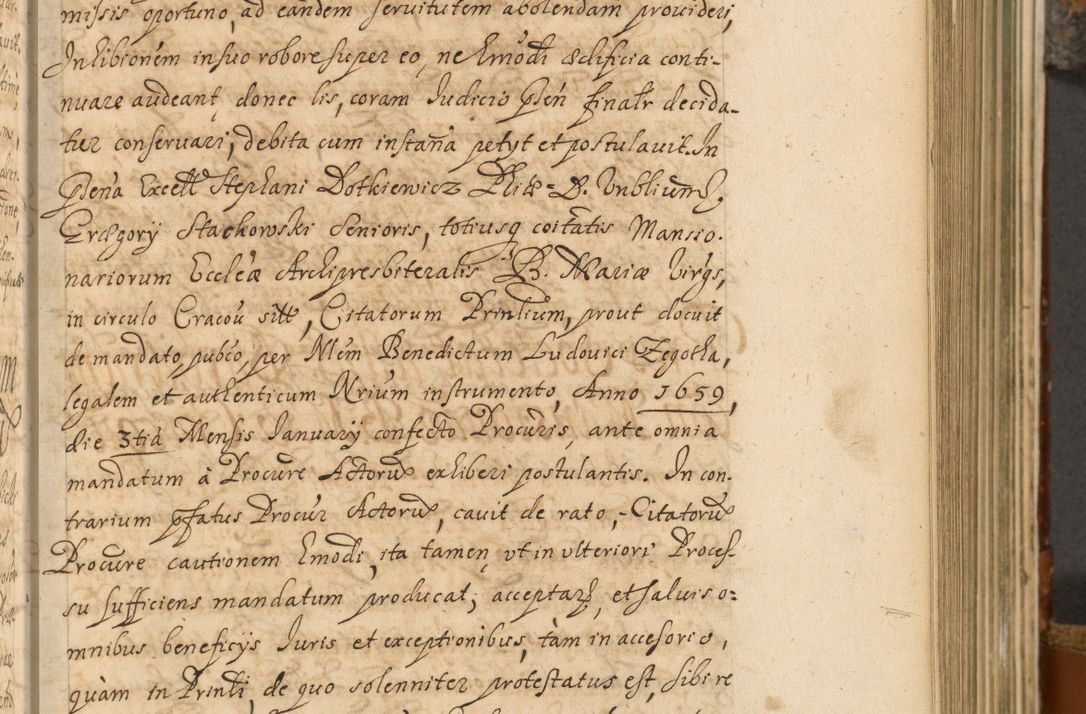 missis oportuno, ad eandem servitutem abolendam provideri,
Inhibionem in suo robore super eo, ne hmodi ædificia conti-
nuare audeant, donec lis, coram Iudicio Psen finalr decida-
tur conservari, debita cum instana petyt et postulavit. In
Psena Excell Stephani Dotkiewicz Phiæ D.
Grægory Stachowski Senioris, totiusq coitatis Mansio-
nariorum Eccleæ Archipresbiteralis B. Mariæ Virgs,
in circulo Cracov sitt, Citatorum Prinlium, prout docuit
de mandato, pubco, per Nlem Benedictum Ludovici Zegotha,
legalem et authenticum Nrium instrumento, Anno 1659,
die 3tia Mensis Ianuary confecto Procuris, ante omnia
mandatum à Procure Actoru exhiberi postulantis. In con-
trarium pfatus Procur Actoru, cavit de rato, Citatoru
Procure cautionem hmodi, ita tamen, ut in ulteriori Proces-
su sufficiens mandatum producat, acceptan, et salvis o-
mnibus beneficijs Iuris et exceptionibus, tàm in accesorio,
quàm in Prinli, de quo solenniter protestatus est, sibi re